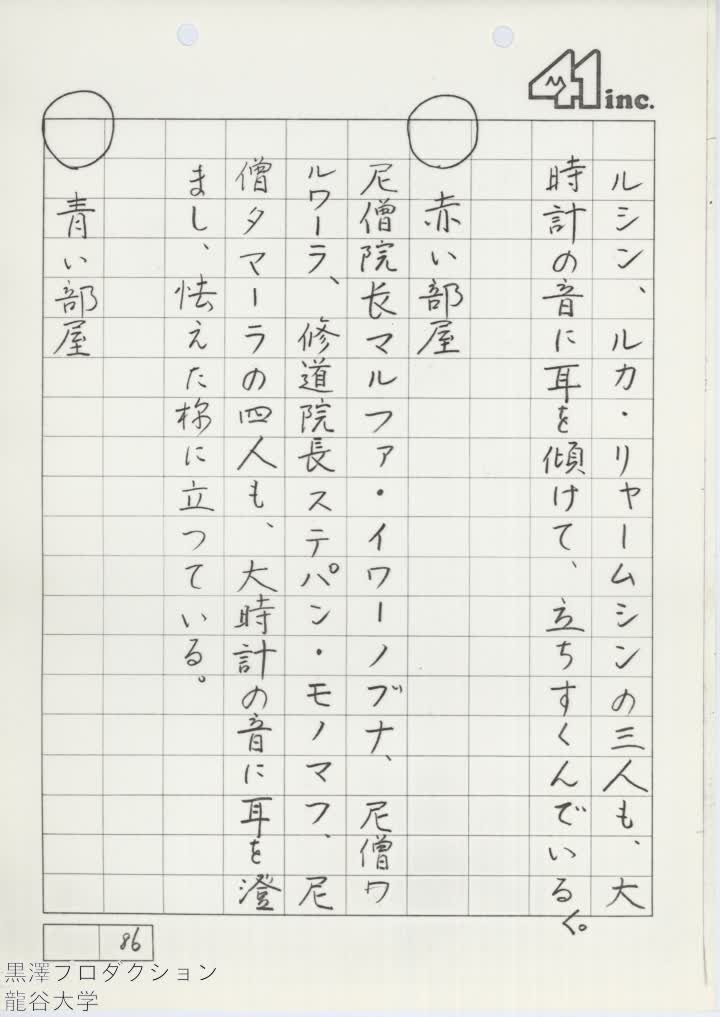 41 inc.
ルシン、ルカ・リャームシンの三人も、大
時計の音に耳を傾けて、立ちすくんでいる。
赤い部屋
尼僧院長マルファ・イワーノブナ、尼僧ワ
ルワーラ、修道院長ステパン・モノマフ、尼
僧タマーラの四人も、大時計の音に耳を澄
まし、怯えた様に立つている。
青い部屋
86
黒澤プロダクション
龍谷大学